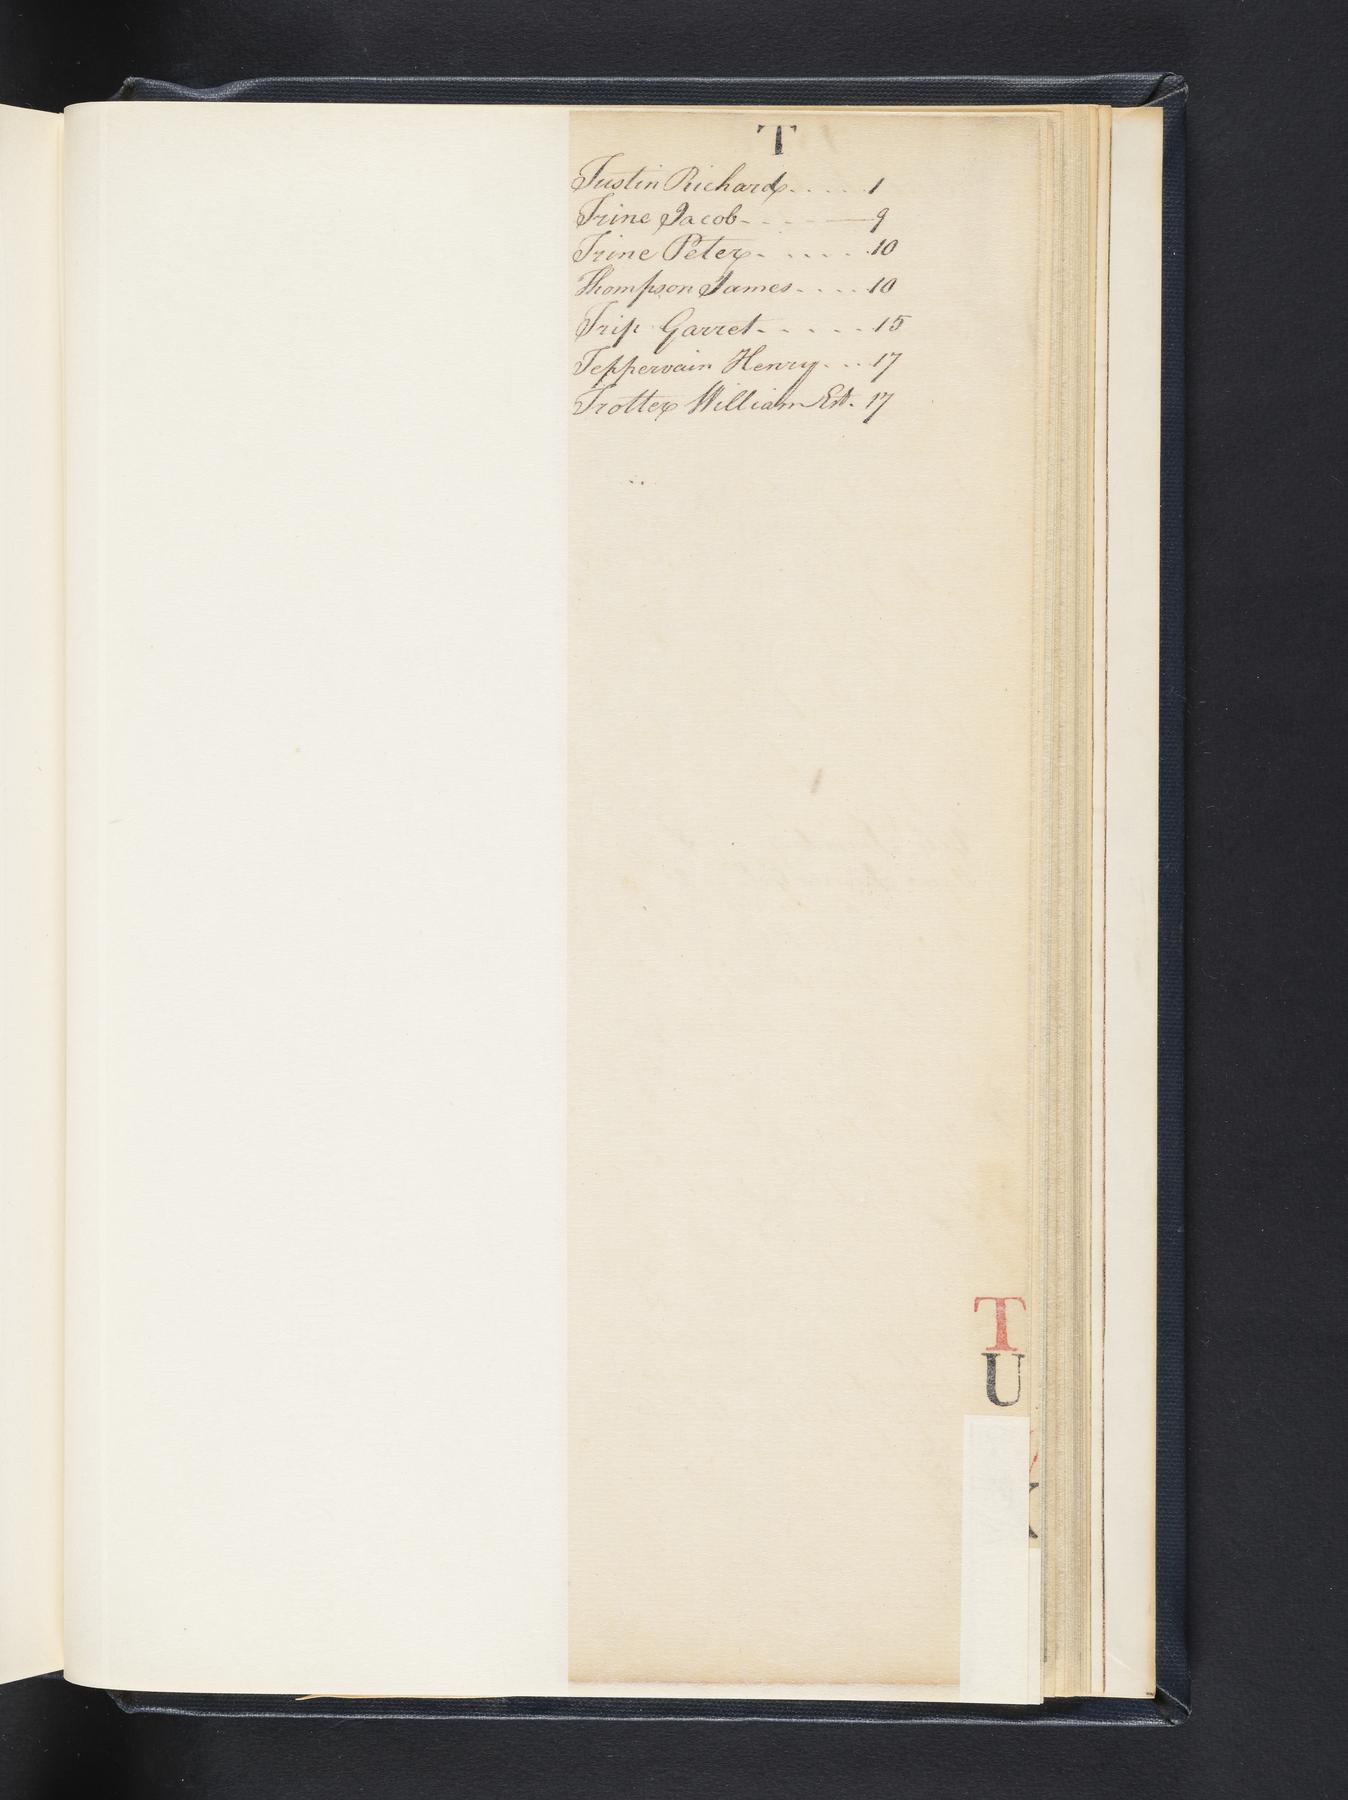 T
Tustin Richard.....1
Trine Jacob-----9
Trine Peter.....10
Thompson James....10
Trip Garret.....15
Teppervain Henry...17
Trotter William Est. 17
T
U